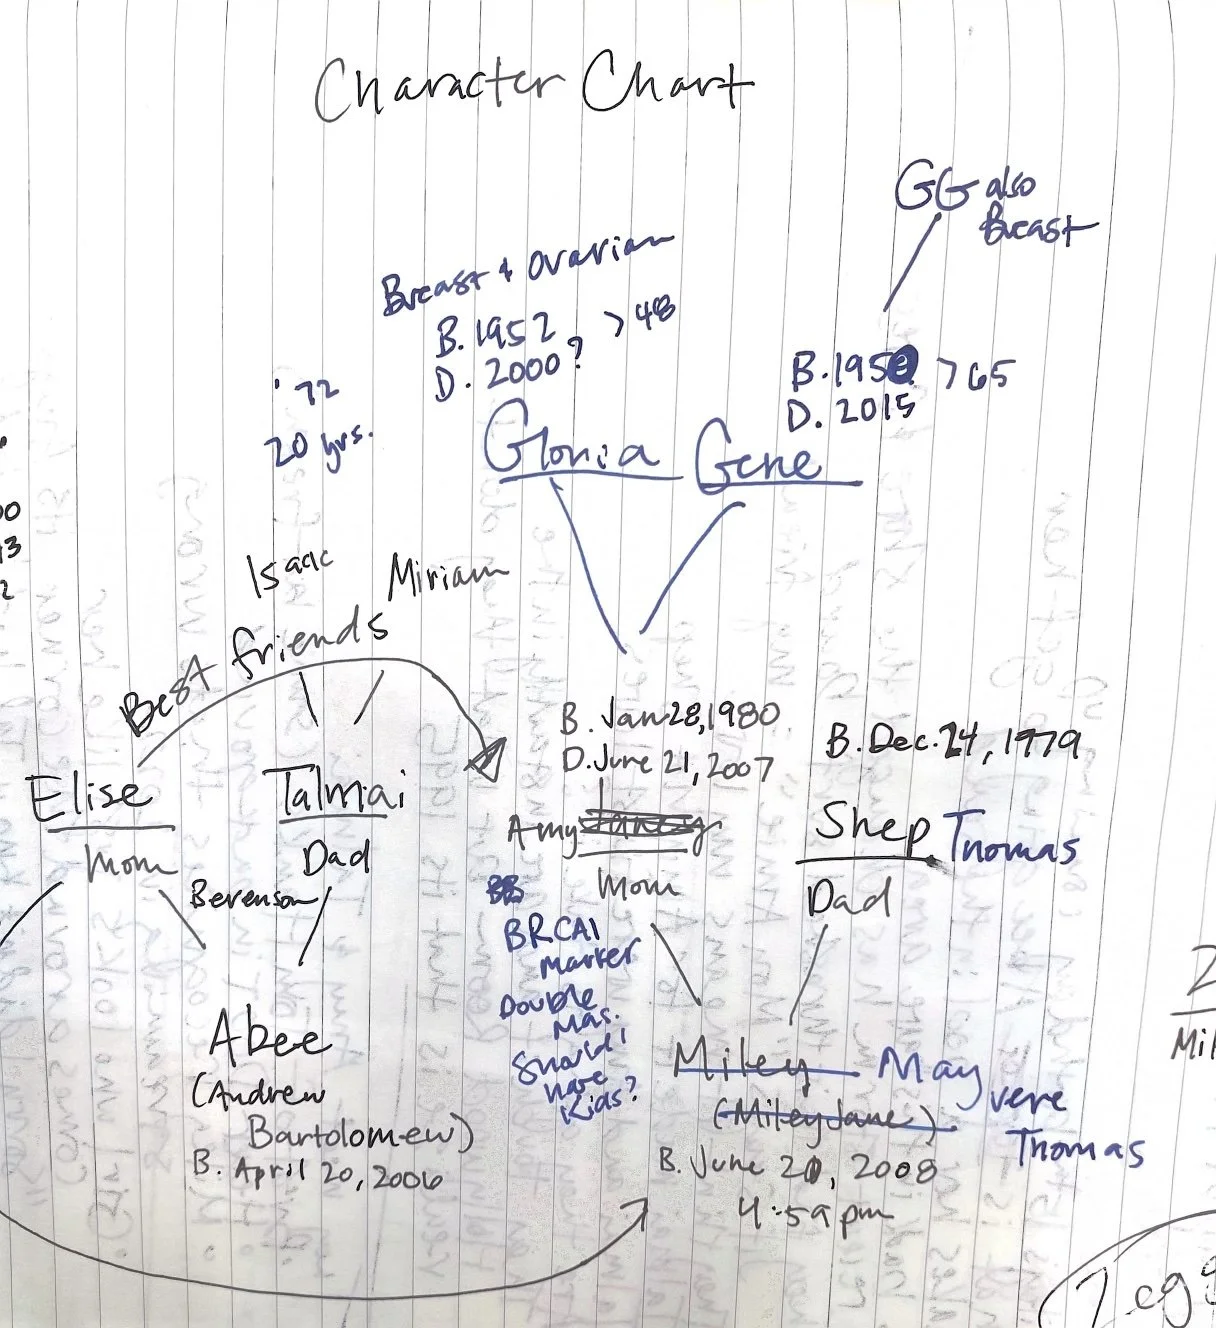 Character Chart
GG also
Breast
Breast & Ovarian
B. 1952 > 48
D. 2000?
B. 1950 > 65
D. 2015
'72
20 yrs.
Gloria Gene
Isaac Miriam
Best friends
B. Jan 28, 1980
D. June 21, 2007
B. Dec. 24, 1979
Elise Talmai
Amy
Shep Thomas
Mom Dad
Mom Dad
Berenson
BRCA1
Marker
Double
Mas.
Should I
have
Kids?
Abee
(Andrew
Bartolomew)
B. April 20, 2006
Miley May
vere
(Miley Jane)
Thomas
B. June 20, 2008
4:59 pm